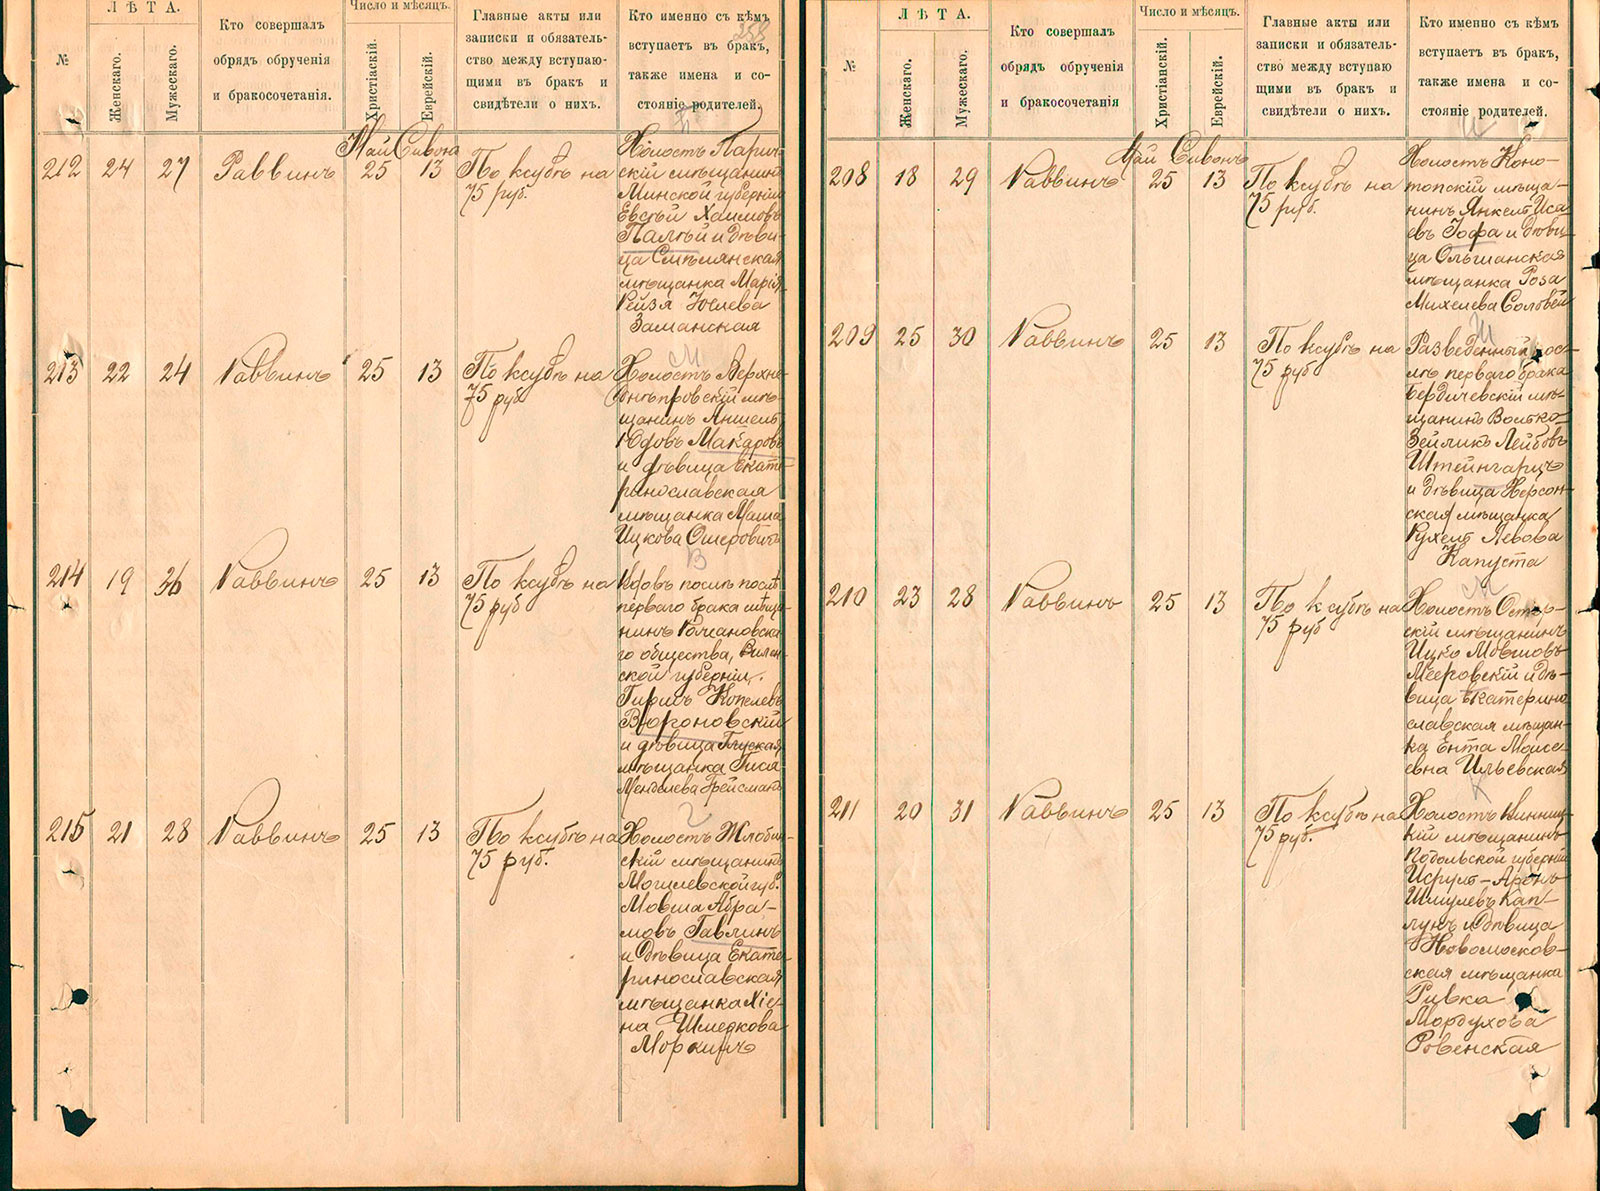 Л Ѣ Т А.
№
Женскаго.
Мужескаго.
Кто совершалъ
обрядъ обрученія
и бракосочетанія.
Число и мѣсяцъ.
Христіаскій.
Еврейскій.
Главные акты или
записки и обязатель-
ство между вступаю-
щими въ бракъ и
свидѣтели о нихъ.
Кто именно съ кѣмъ
вступаетъ въ бракъ,
также имена и со-
стояніе родителей.
258
Май Сивонъ
212 24 27 Раввинъ 25 13
По ксубѣ на
75 руб.
Холостъ Парич-
скій мѣщанинъ
Минской губерніи
Евсѣй Хаимовъ
Палѣй и дѣви-
ца Смѣлянская
мѣщанка Марія-
Рейзя Іослева
Заманская
213 22 24 Раввинъ 25 13
По ксубѣ на
75 руб
М
Холостъ Верхне-
днѣпровскій мѣ-
щанинъ Аншель
Юдовъ Макаровъ
и дѣвица Екате-
ринославская
мѣщанка Маша
Ицкова Ошеровичъ
214 19 36 Раввинъ 25 13
По ксубѣ на
75 руб
В
Вдовъ послѣ
перваго брака мѣща-
нинъ Романовска-
го общества, Вилен-
ской губерніи.
Гиршъ Копелевъ
Воргоновскій
и дѣвица Глуская
мѣщанка Гися
Менделева Грейсманъ
215 21 28 Раввинъ 25 13
По ксубѣ на
75 руб.
Г
Холостъ Жлобин-
скій мѣщанинъ
Могилевской губ.
Мовша Абра-
мовъ Гавлинъ
и дѣвица Екате-
ринославская
мѣщанка Хіе-
на Шмеркова
Моркинъ
Л Ѣ Т А.
№
Женскаго.
Мужескаго.
Кто совершалъ
обрядъ обрученія
и бракосочетанія
Число и мѣсяцъ.
Христіанскій.
Еврейскій.
Главные акты или
записки и обязатель-
ство между вступаю
щими въ бракъ и
свидѣтели о нихъ.
Кто именно съ кѣмъ
вступаетъ въ бракъ,
также имена и со-
стояніе родителей.
Май Сивонъ
208 18 29 Раввинъ 25 13
По ксубѣ на
75 руб.
Холостъ Коно-
топскій мѣща-
нинъ Янкель Иса-
евъ Іофа и дѣви-
ца Ольшанская
мѣщанка Роза
Михелева Соловей
209 25 30 Раввинъ 25 13
По ксубѣ на
75 руб
Ш
Разведенный пос-
лѣ перваго брака
Бердичевскій мѣ-
щанинъ Волько-
Зейликъ Лейбовъ
Штейнгарцъ
и дѣвица Херсон-
ская мѣщанка
Рухель Левова
Капуста
210 23 28 Раввинъ 25 13
По ксубѣ на
75 руб
М
Холостъ Остер-
скій мѣщанинъ
Ицко Мовшовъ
Мееровскій и дѣ-
вица Екатерино
славская мѣщан-
ка Ента Моисе-
евна Ильевская
211 20 31 Раввинъ 25 13
По ксубѣ на
75 руб.
К
Холостъ Винниц-
кій мѣщанинъ
Подольской губерніи
Исруль-Аронъ
Шмулевъ Кап-
лунъ и дѣвица
Новомосков-
ская мѣщанка
Ривка
Мордухова
Ровенская